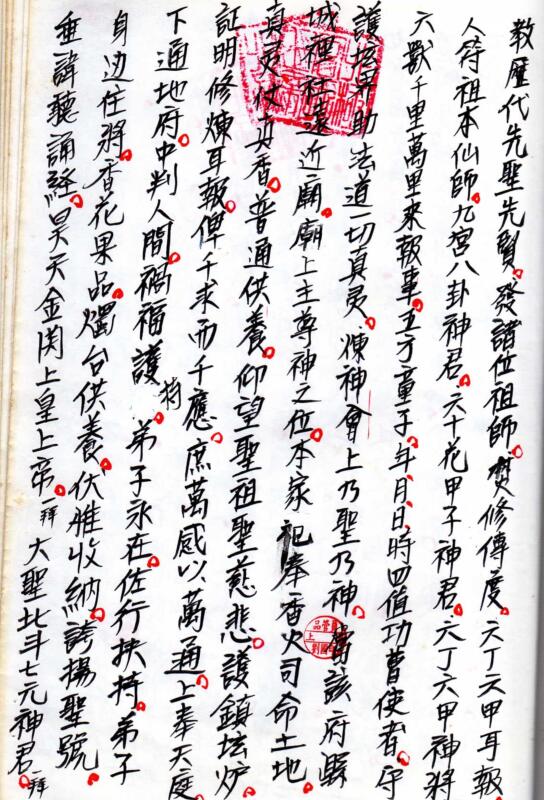 教歷代先聖先賢發諸位祖師焚修傳度六丁六甲耳報
人符祖本仙師九宮八卦神君六十花甲子神君六丁六甲神將
六獸千里萬里來報事五方童子年月日時四值功曹使者守
護坛界助法道一切真灵煉神會上乃聖乃神當該府縣
城裡社遠近廟廟上主尊神之位本家祀奉香火司命土地
真灵仗真香普通供養仰望聖祖聖慈悲護鎮坛炉
証明修煉耳報俾千求而千應庶萬感以萬通上奉天庭
下通地府中判人間禍福護持弟子永在佐行扶持弟子
身边住將香花果品燭台供養伏雅收納誇揚聖號
垂諱聽誦経昊天金闕上皇上帝一拜大聖北斗七元神君一拜